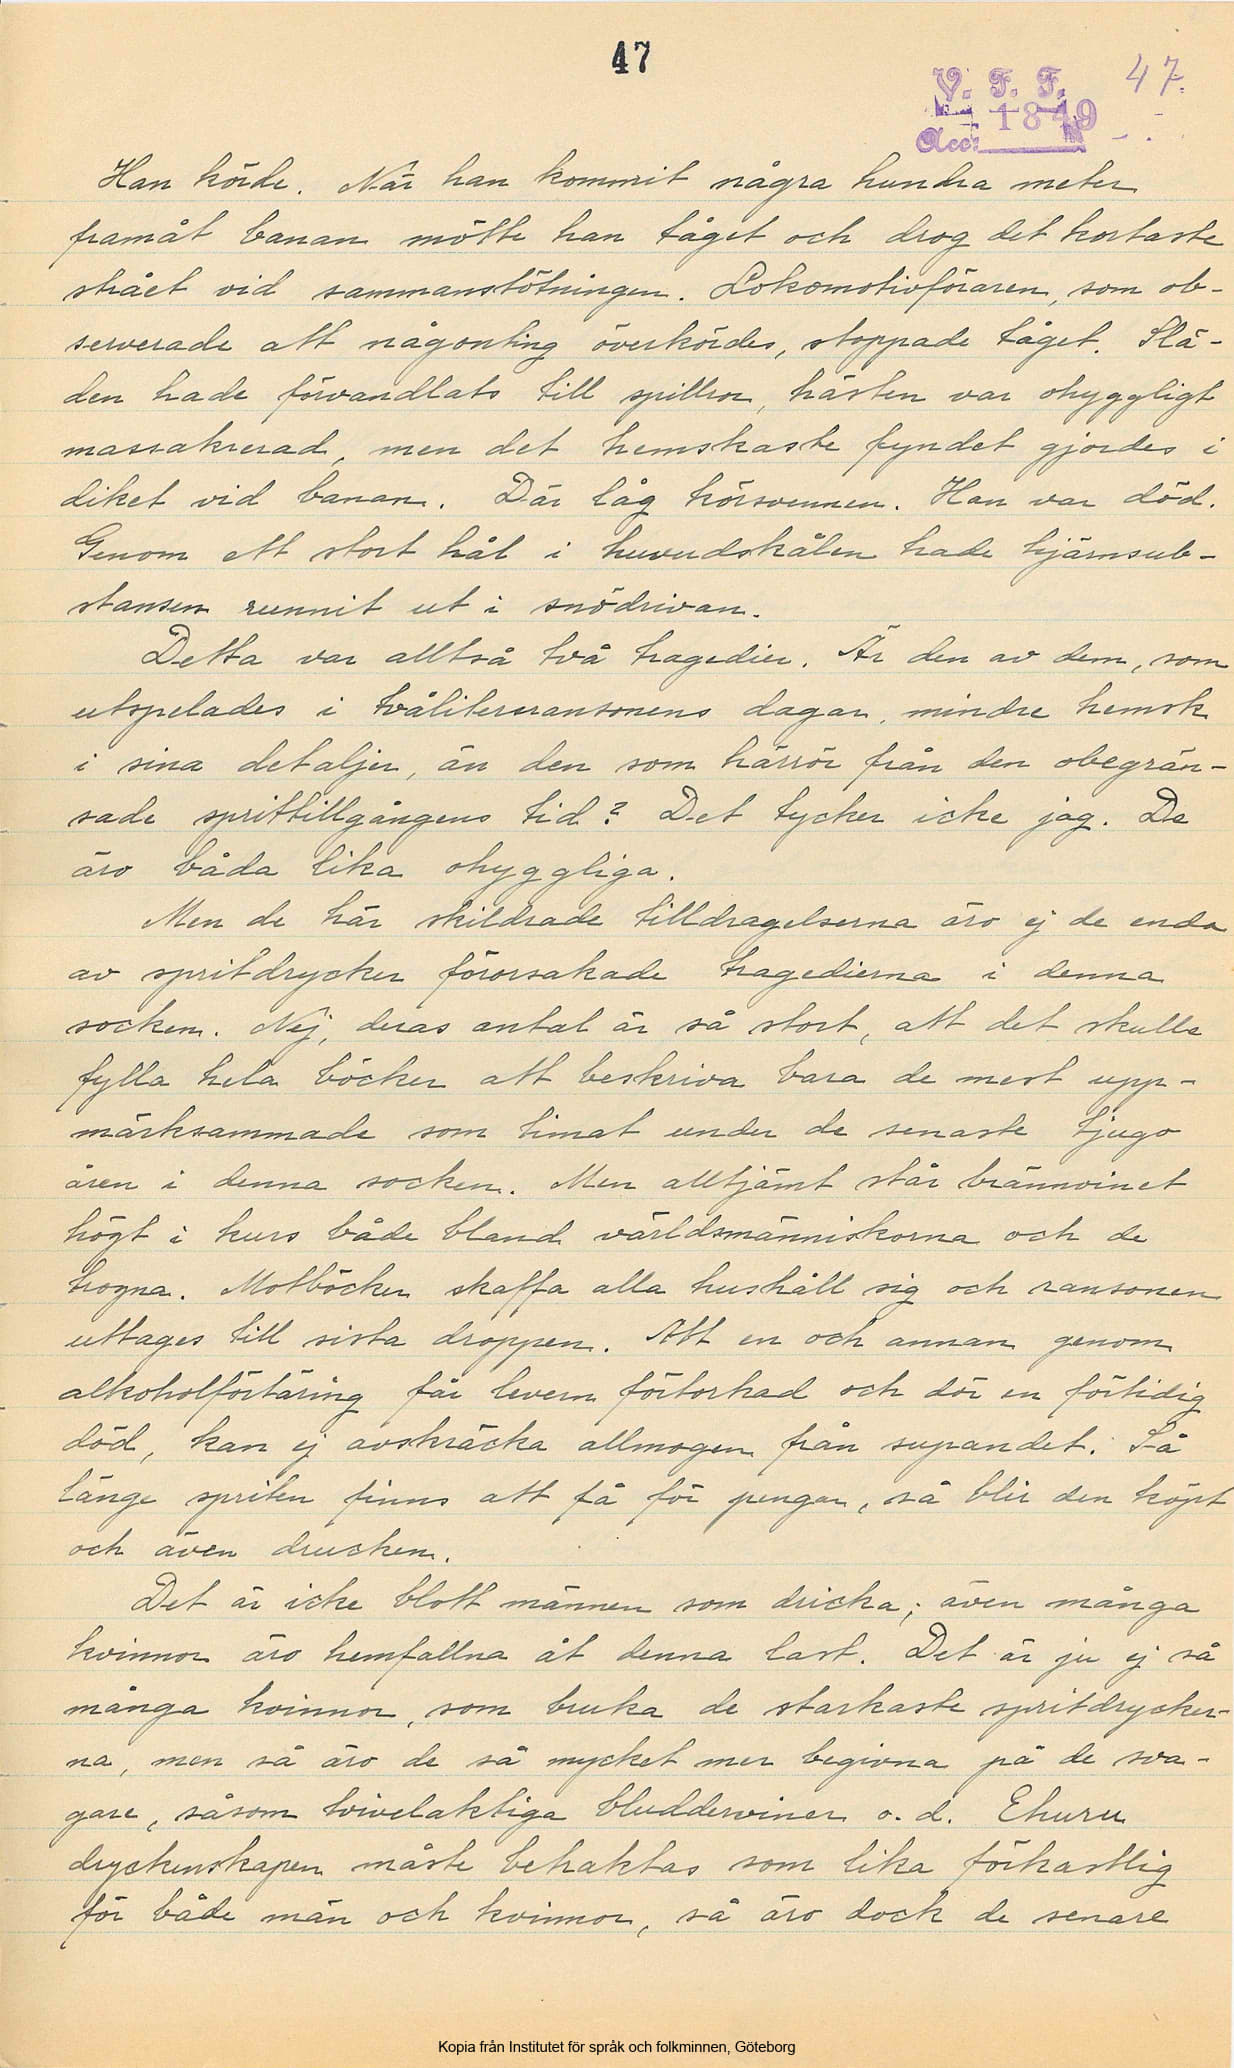 47
V. F. F. 47.
1849
Acc:
Han körde. När han kommit några hundra meter
framåt banan mötte han tåget och drog det kortaste
strået vid sammanstötningen. Lokomotivföraren, som ob-
serverade att någonting överkördes, stoppade tåget. Slä-
den hade förvandlats till spillror, hästen var ohyggligt
massakrerad, men det hemskaste fyndet gjordes i
diket vid banan. Där låg körsvennen. Han var död.
Genom ett stort hål i huvudskålen hade hjärnsub-
stansen runnit ut i snödrivan.
Detta var alltså två tragedier. Är den av dem, som
utspelades i tvålitersransonens dagar, mindre hemsk
i sina detaljer, än den som härrör från den obegrän-
sade sprittillgångens tid? Det tycker icke jag. De
äro båda lika ohyggliga.
Men de här skildrade tilldragelserna äro ej de enda
av spritdrycker förorsakade tragedierna i denna
socken. Nej, deras antal är så stort, att det skulle
fylla hela böcker att beskriva bara de mest upp-
märksammade som timat under de senaste tjugo
åren i denna socken. Men alltjämt står brännvinet
högt i kurs både bland världsmänniskorna och de
trogna. Motböcker skaffa alla hushåll sig och ransonen
uttages till sista droppen. Att en och annan genom
alkoholförtäring får levern förtorkad och dör en förtidig
död, kan ej avskräcka allmogen från supandet. Så
länge spriten finns att få för pengar, så blir den köpt
och även drucken.
Det är icke blott männen som dricka; även många
kvinnor äro hemfallna åt denna last. Det är ju ej så
många kvinnor, som bruka de starkaste spritdrycker-
na, men så äro de så mycket mer begivna på de sva-
gare, såsom tvivelaktiga bludderviner o. d. Ehuru
dryckenskapen måste betraktas som lika förkastlig
för både män och kvinnor, så äro dock de senare
Kopia från Institutet för språk och folkminnen, Göteborg